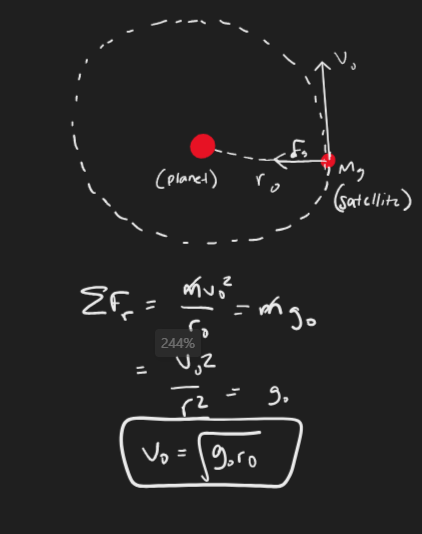 v₀
F₉
(planet)
r₀
m₉
(satellite)
ΣFᵣ = mv₀²/r₀ = mg₀
244%
= v₀2/r² = g₀
v₀ = √g₀r₀